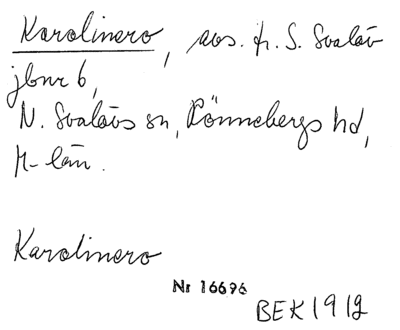 Karolinero, avs. fr. S. Svalöv
jbnr 6,
N. Svalövs sn, Rönnebergs hd,
M-län.
Karolinero
Nr 16696
BEK 1912